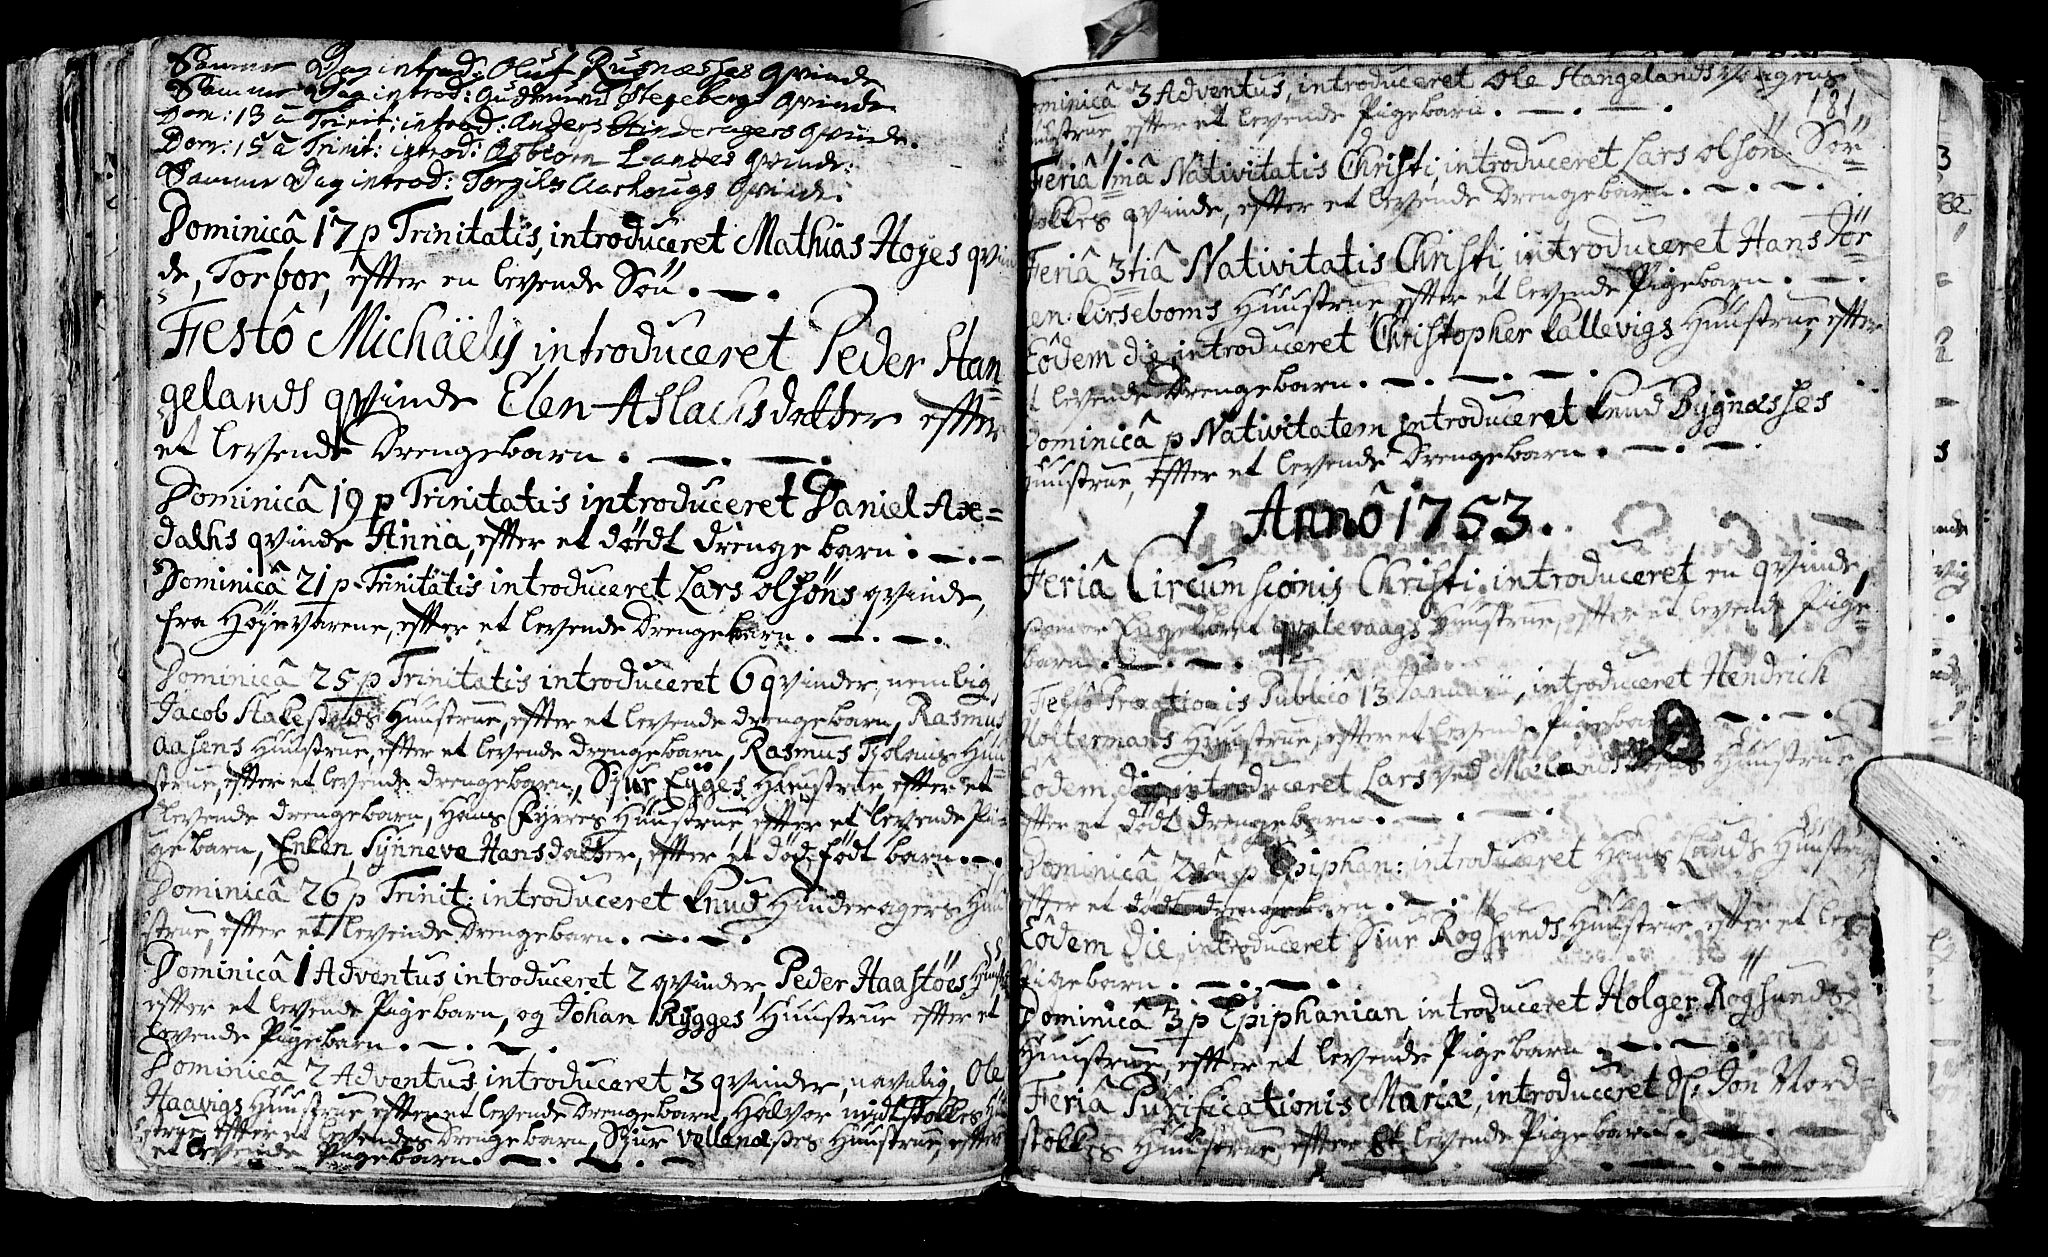 Samme Dag introd: Oluf Rusnæsses Qvinde
Samme Dag introd: Gudmund Stegebergs Qvinde
Dom: 13 à Trinit: introd: Anders Hinderagers Qvinde.
Dom: 15 à Trinit: introd: Asbiörn Landes Qvinde:
Samme Dag introd: Torgils Aarhougs Qvinde.
Dominicâ 17 p Trinitatis, introduceret Mathias Hoyes qvin
de, Torbor, efter en levende Sön.
Festô Michäelis introduceret Peder Han-
gelands qvinde Elen Aslachsdatter efter
et levende Drengebarn.
Dominicâ 19 p Trinitatis introduceret Daniel Ax-
dalhs qvinde Anna, efter et dödt drenge barn.
Dominicâ 21 p Trinitatis introduceret Lars olsöns qvinde,
fra Höyevarene, efter et levende Drengebarn.
Dominicâ 25 p Trinitatis introduceret 6 qvinder, nemlig
Jacob Stakesteds Huustrue, efter et levende drengebarn, Rasmus
Aasens Huustrue, efter et levende drengebarn, Rasmus Tiolans Huu
strue, efter et levende drengebarn, Sjur Eyges Huustrue efter et
levende drengebarn, Hans Fyrres Huustrue efter et levende Pi-
gebarn, Enken, Synneve Hansdatter, efter et död födt barn.
Dominicâ 26 p Trinit: introduceret Knud Hinderagers Huu
strue, efter et levende Drengebarn.
Dominicâ 1 Adventus introduceret 2 qvinder, Peder Haastöes Huustr
efter et levende Pigebarn, og Johan Rygges Huustrue efter et
levende Pigebarn.
Dominicâ 2 Adventus introduceret 3 qvinder, navnlig, Ole
Haavigs Huustrue efter et levende Drengebarn, Halvor midtstokkes Huu
strue efter et levendes Drengebarn, Sjur Vellandses Huustrue, efter
et levende Pigebarn.
ominicâ 3 Adventus, introduceret Ole Hangelands
181
huustrue, efter et levende Pigebarn.
Feriâ 1mâ Nativitatis Christi, introduceret Lars olsön Sör-
stokkes qvinde, efter et levende Drengebarn.
Feriâ 3tiâ Nativitatis Christi, introduceret Hans Jör
en: Kirseboms Huustrue efter et levende Pigebarn.
Eôdem die introduceret Christopher Kallevigs Huustrue, efter
t levende Drengebarn.
Dominicâ p Nativitatem introduceret Knud Bygnæsses
huustrue, efter et levende Drengebarn.
Annô 1753.
Feriâ Circumscionis Christi introduceret en qvinde,
som er Engebret qvalevaags Huustrue, efter et levende Pige-
barn.
Festô Praxationis Publicô 13 Januarii, introduceret Hendrich
Holtermans Huustrue, efter et levende Pigebarn.
Eôdem die introduceret Lars ved Mælands Huustrue
efter et dödt drengebarn.
Dominicâ 2dâ p Epiphan: introduceret Hans Lands Huustrue
efter et dödt drengebarn.
Eôdem die introduceret Siur Rogsunds Huustrue efter et le
Pigebarn.
Dominicâ 3 p Epiphanian introduceret Holger Rogsunds
Huustrue, efter et levende Pigebarn.
Feriâ Purificationis Mariæ, introduceret Jon Nord-
stokkes Huustrue efter et levende Pigebarn.